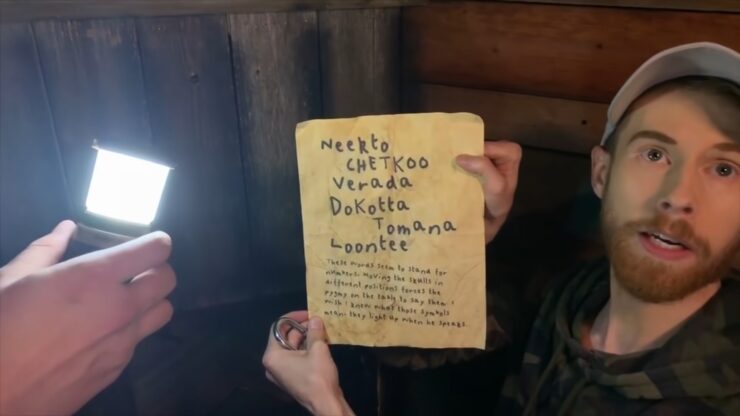 Neekto
CHETKOO
Verada
DoKotta
Tomana
Loontee
These words seem to stand for
numbers. Moving the skulls in
different positions forces the
pygmy on the table to say them. I
wish I knew what those symbols
mean. they light up when he speaks.